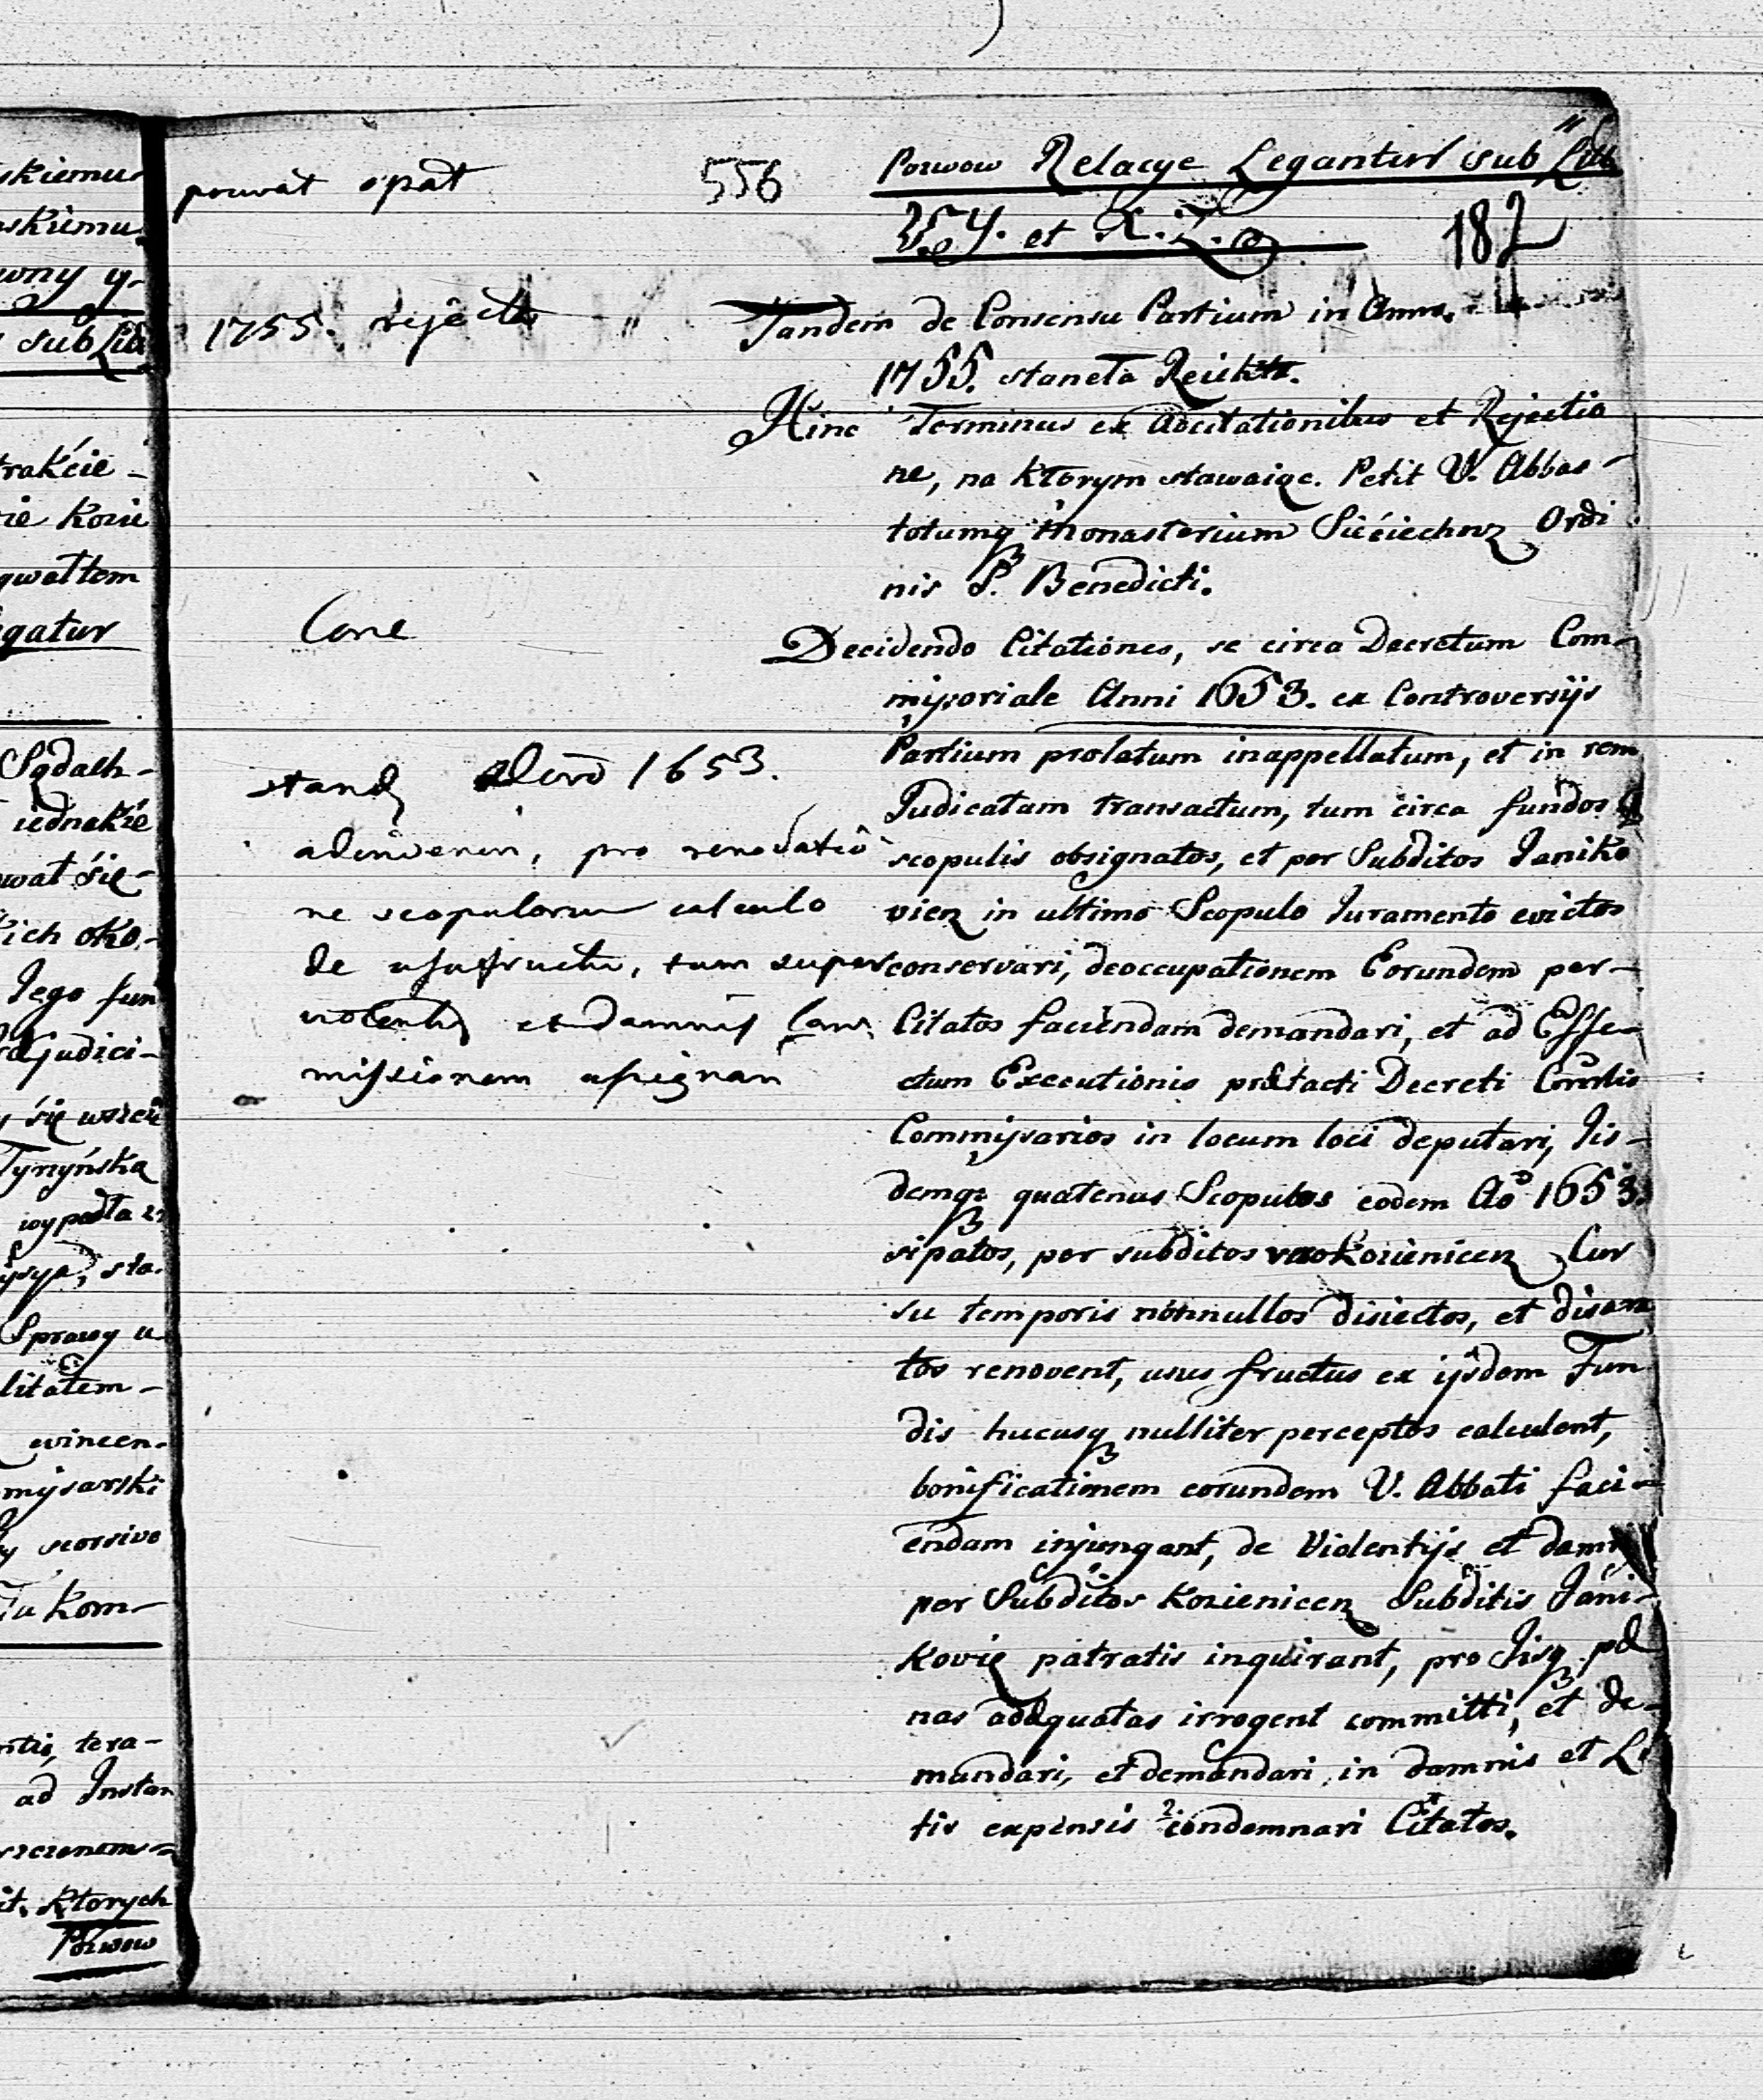 skiemu
skiemu
wny y-
sub Litt
trakcie -
ie Kozie
gwałtem
gatur
Sądach -
iednakie
wat się -
ich oko,-
Jego fun
judici-
się wrzcie
Tynyńska
wypadła z
sta-
Sprawy u
litatem -
evincen-
misarski
seorsive
Tu Kom-
tera-
ad Instan
it, Ktorych
Pozwow
pozwał opat
556
1755. reject "
Conc
stand Decro 1653.
adinvenin, pro renovatio
ne scopulorum calculo
de usufructu, tum super
violentis et damnis Com
missionem assignari
Pozwow Relacye Legantur sub Litt
Y. et X. Z.
182
Tandem de Consensu Partium in Anno.
1755. staneła Reiekta.
Hinc Terminus ex Adcitationibus et Rejectio
ne, na ktorym stawaiąc. Petit V. Abbas -
totumq Monasterium Sieciechoz Ordi
nis S. Benedicti.
Decidendo Citationes, se circa Decretum Com-
missoriale Anni 1653. ex Controversijs
Partium prolatum inappellatum, et in rem
Judicatam transactum, tum circa fundos
scopulis obsignatos, et per Subditos Janiko
vien in ultimo Scopulo Juramento evictos
conservari, deoccupationem Eorundem per -
Citatos faciendam demandari, et ad Effe-
ctum Executionis prætacti Decreti Comslis
Commissarios in locum loci deputari, Iis-
demq quatenus Scopulos eodem Ao 1653.
sipatos, per subditos Kozienicen Cur
su temporis nonnullos disiectos, et disan
tos renovent, usus fructus ex ijsdem Fun
dis hucusq nulliter perceptos calculent,
bonificationem eorundem V. Abbati faci-
endam injungant, de Violentijs et damn
per Subditos Kozienicen Subditis Jani-
kovie patratis inquirant, pro Iisq pæ
nas adæquatas irrogent committi, et de-
mandari, et demandari, in damnis et Li
tis expensis condemnari Citatos.